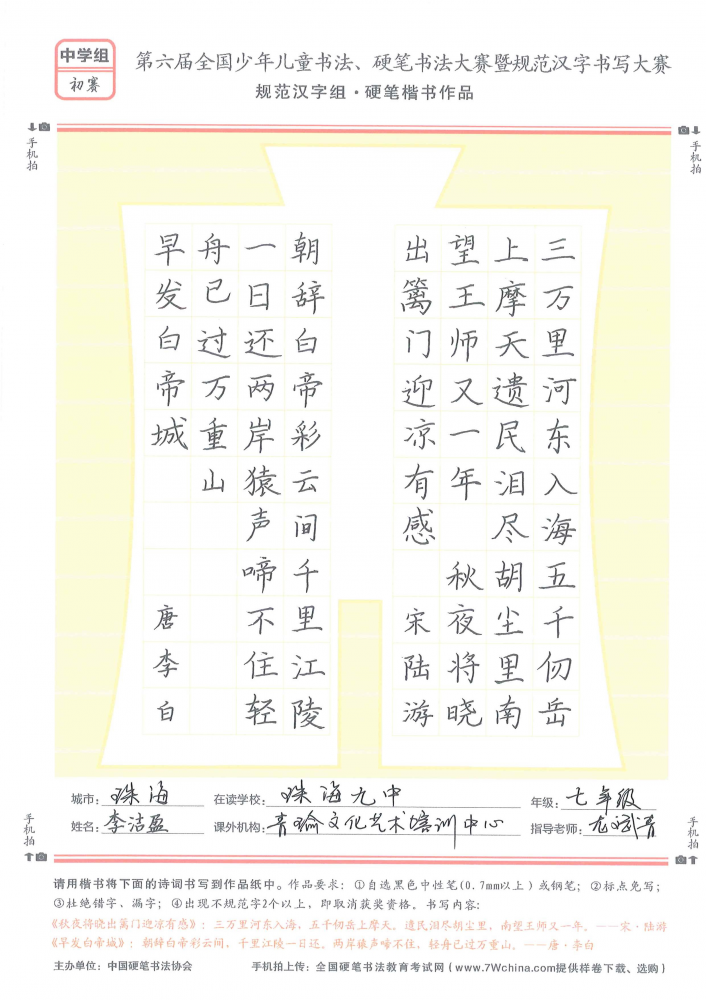 中学组
初赛
第六届全国少年儿童书法、硬笔书法大赛暨规范汉字书写大赛
规范汉字组·硬笔楷书作品
手机拍
手机拍
三万里河东入海五千仞岳
上摩天遗民泪尽胡尘里南
望王师又一年 秋夜将晓
出篱门迎凉有感 宋陆游
朝辞白帝彩云间千里江陵
一日还两岸猿声啼不住轻
舟已过万重山
早发白帝城 唐李白
城市：珠海 在读学校：珠海九中 年级：七年级
姓名：李洁盈 课外机构：青瑜文化艺术培训中心 指导老师：
手机拍
手机拍
请用楷书将下面的诗词书写到作品纸中。作品要求：①自选黑色中性笔(0.7mm以上)或钢笔；②标点免写；
③杜绝错字、漏字；④出现不规范字2个以上，即取消获奖资格。书写内容：
《秋夜将晓出篱门迎凉有感》：三万里河东入海，五千仞岳上摩天。遗民泪尽胡尘里，南望王师又一年。——宋·陆游
《早发白帝城》：朝辞白帝彩云间，千里江陵一日还。两岸猿声啼不住，轻舟已过万重山。——唐·李白
主办单位：中国硬笔书法协会 手机拍上传：全国硬笔书法教育考试网(www.7Wchina.com提供样卷下载、选购)